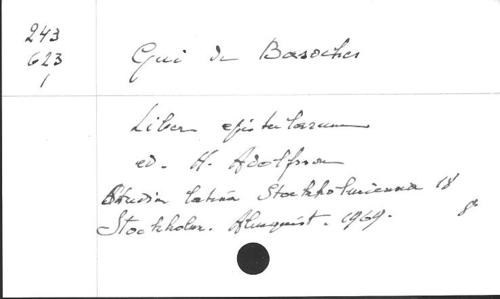 243
623
1
Gui de Basoches
Liber epistularum
ed. H. Adolfsson
Studia latina Stockholmiensia 18
Stockholm. Almquist. 1969. 8°